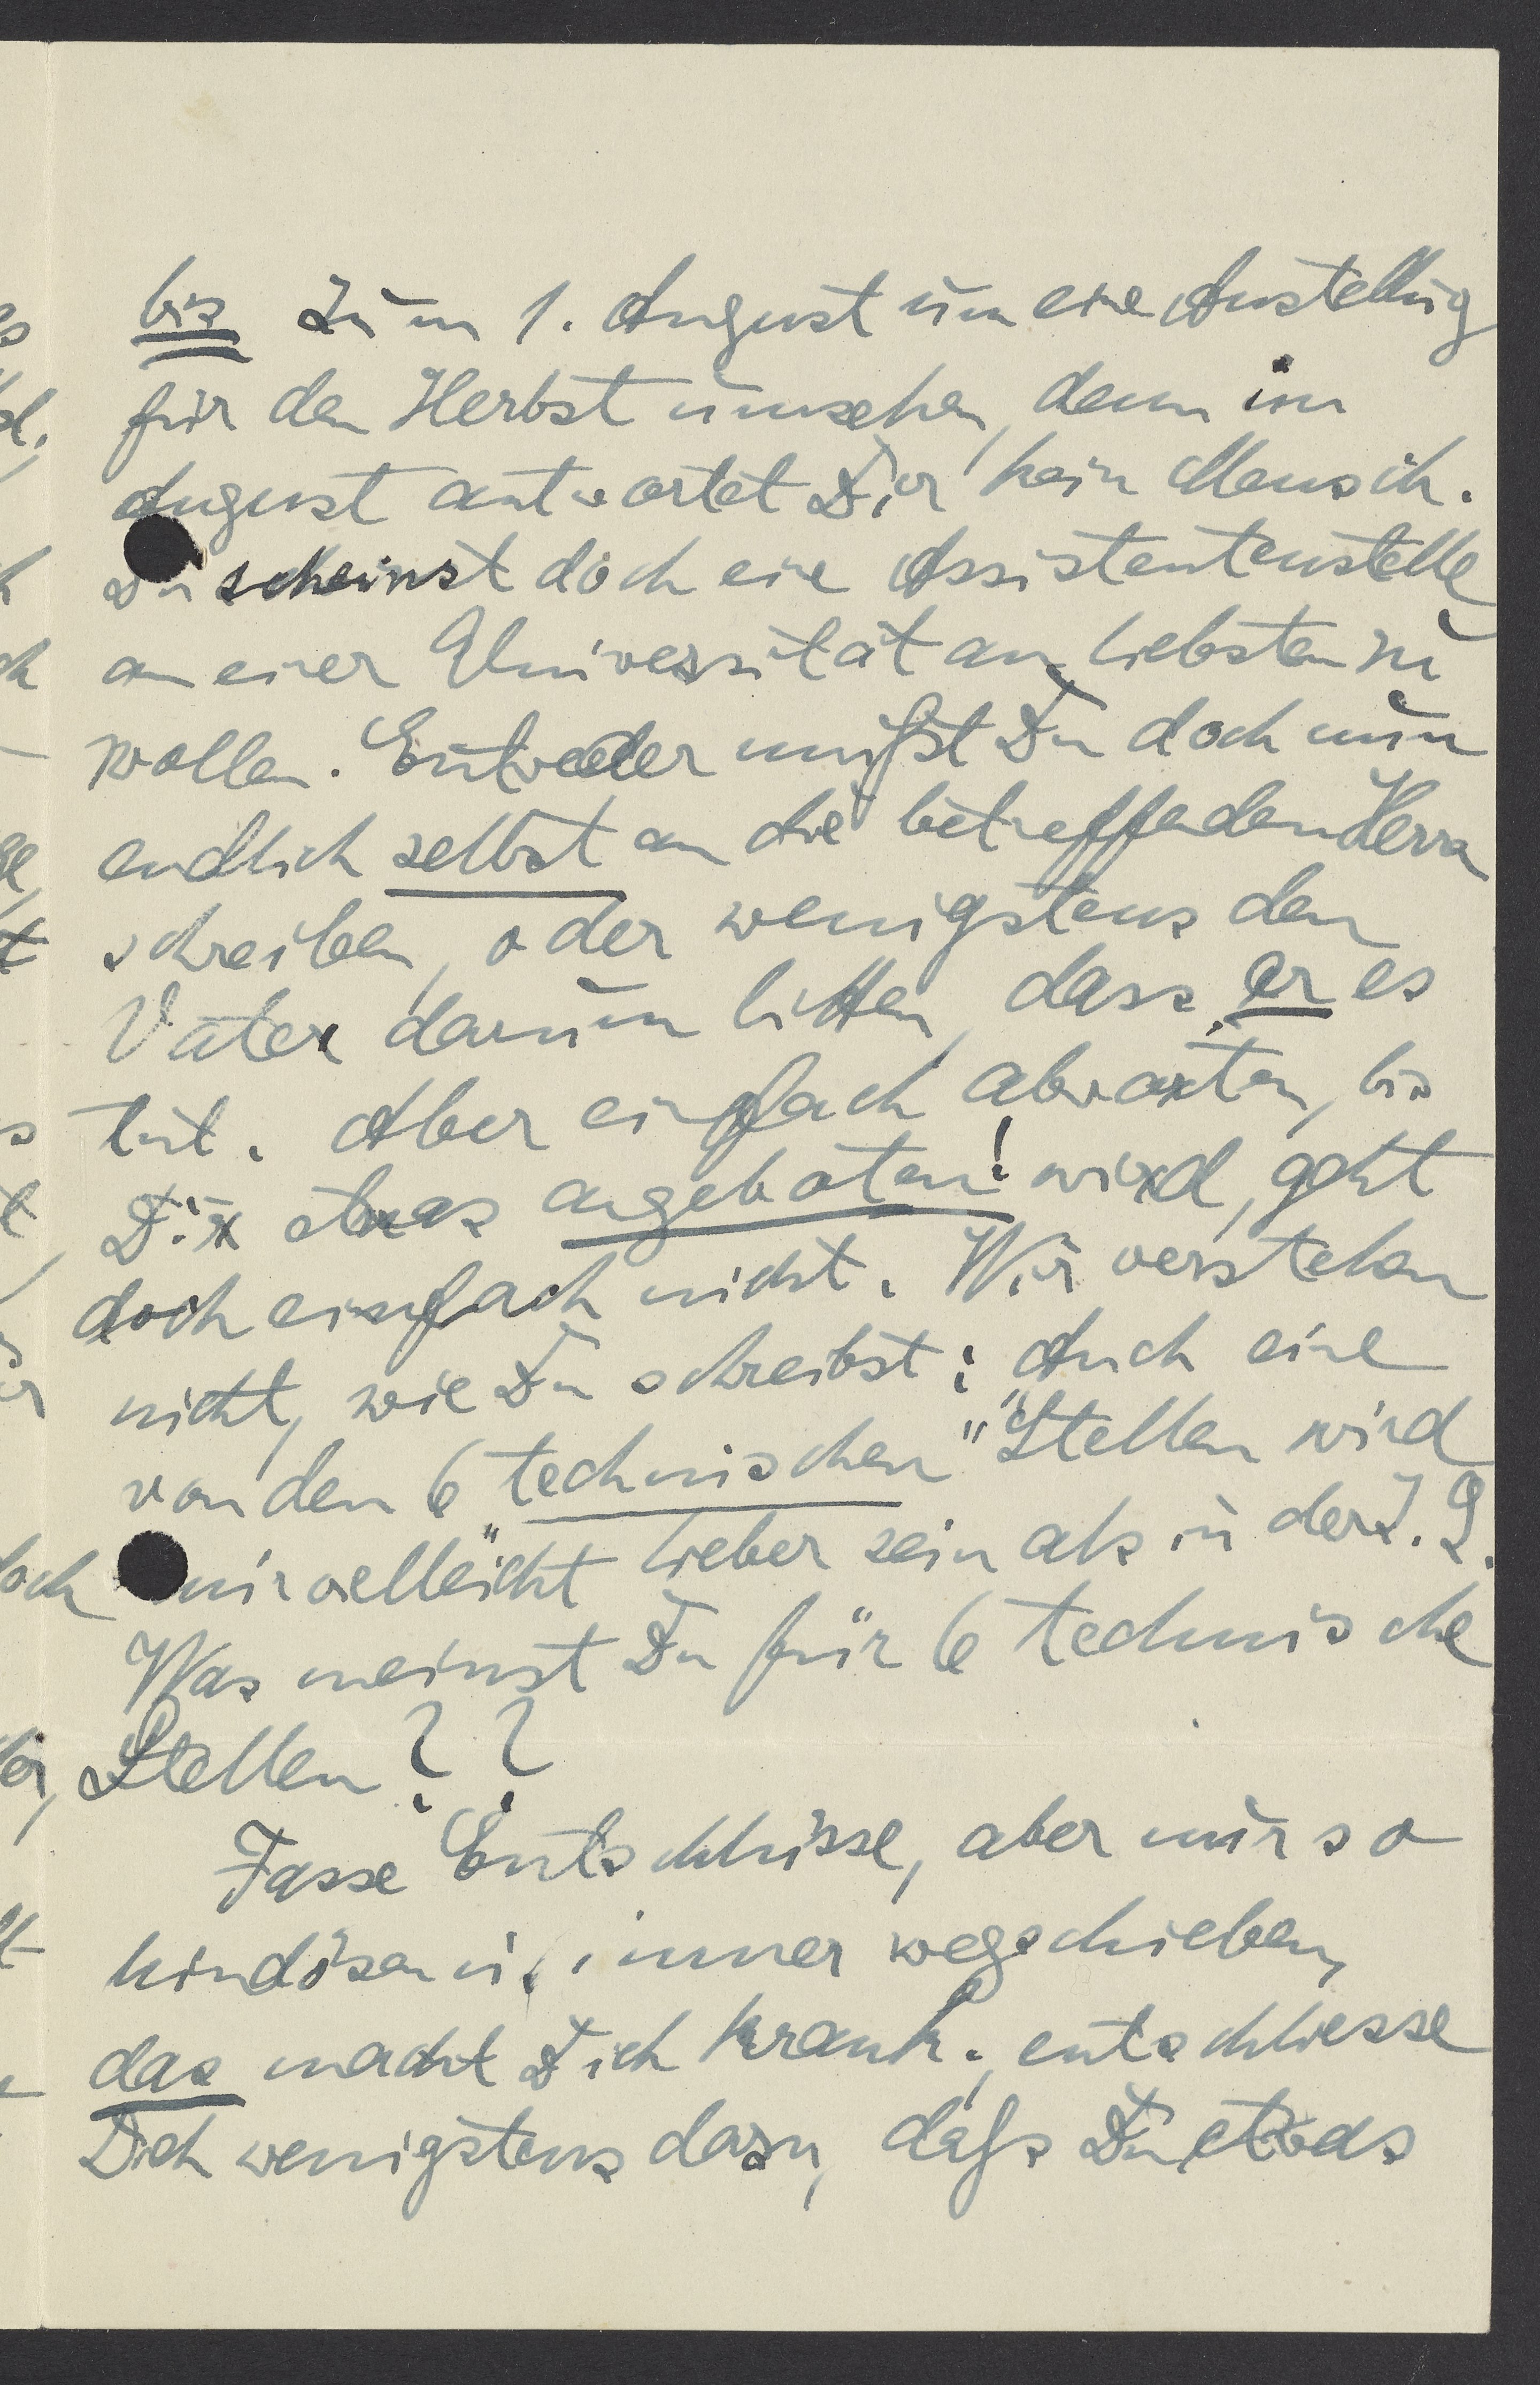 bis zum 1. August um eine Anstellung
für den Herbst umsehen, denn im
August antwortet Dir kein Mensch.
Du scheinst doch eine Assistentenstelle
an einer Universität am liebsten zu
wollen. Entweder mußt Du doch nun
endlich selbst an die betreffenden Herrn
schreiben, oder wenigstens den
Vater darum bitten, dass er es
tut. Aber einfach abwarten, bis
Dir etwas angeboten! wird, geht
doch einfach nicht. Wir verstehen
nicht, wie Du schreibst: Auch eine
von den 6 technischen "Stellen wird
mir vielleicht lieber sein als in der I. G.
Was meinst Du für 6 technische
Stellen??
Fasse Entschlüsse, aber nur so
hindösen u. immer wegschieben,
das macht Dich krank; entschliesse
Dich wenigstens dazu, daß Du etwas